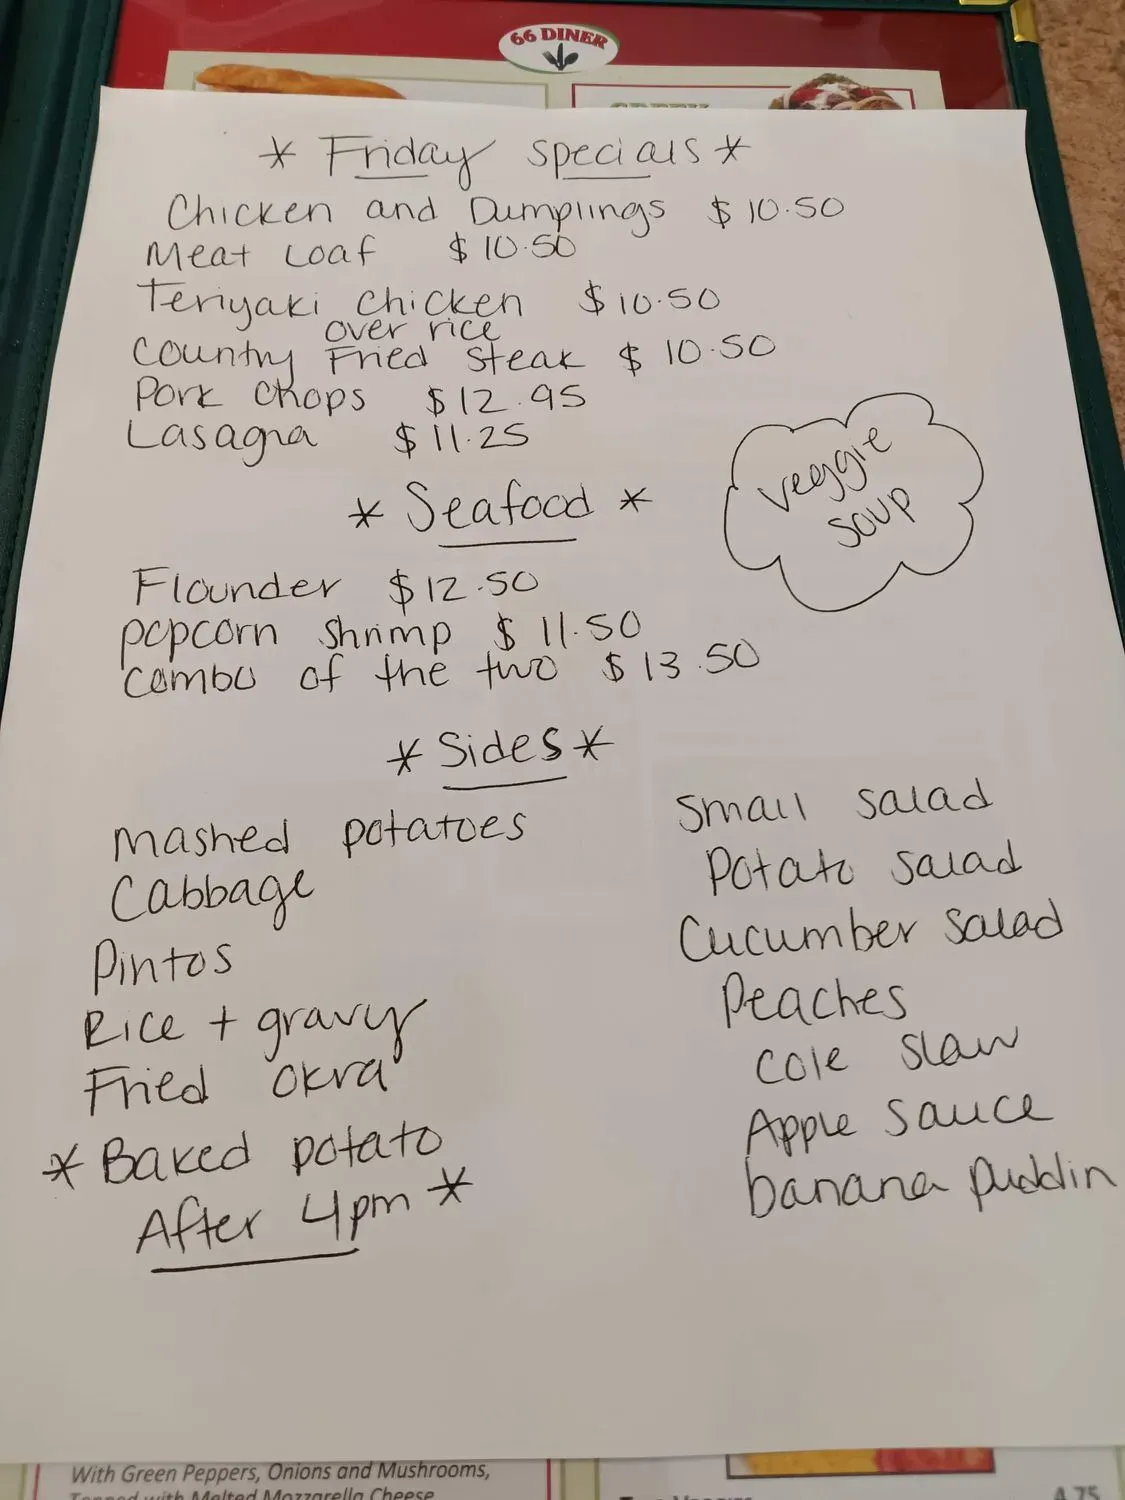 66 DINER
* Friday specials *
Chicken and Dumplings $10.50
Meat Loaf $10.50
Teriyaki chicken $10.50
over rice
Country Fried steak $10.50
Pork Chops $12.95
Lasagna $11.25
veggie
soup
* Seafood *
Flounder $12.50
popcorn shrimp $11.50
combo of the two $13.50
* Sides *
mashed potatoes
Cabbage
Pintos
Rice + gravy
Fried okra
* Baked potato
After 4pm *
small salad
Potato salad
Cucumber salad
Peaches
cole slaw
Apple sauce
banana puddin
With Green Peppers, Onions and Mushrooms,
Topped with Melted Mozzarella Cheese